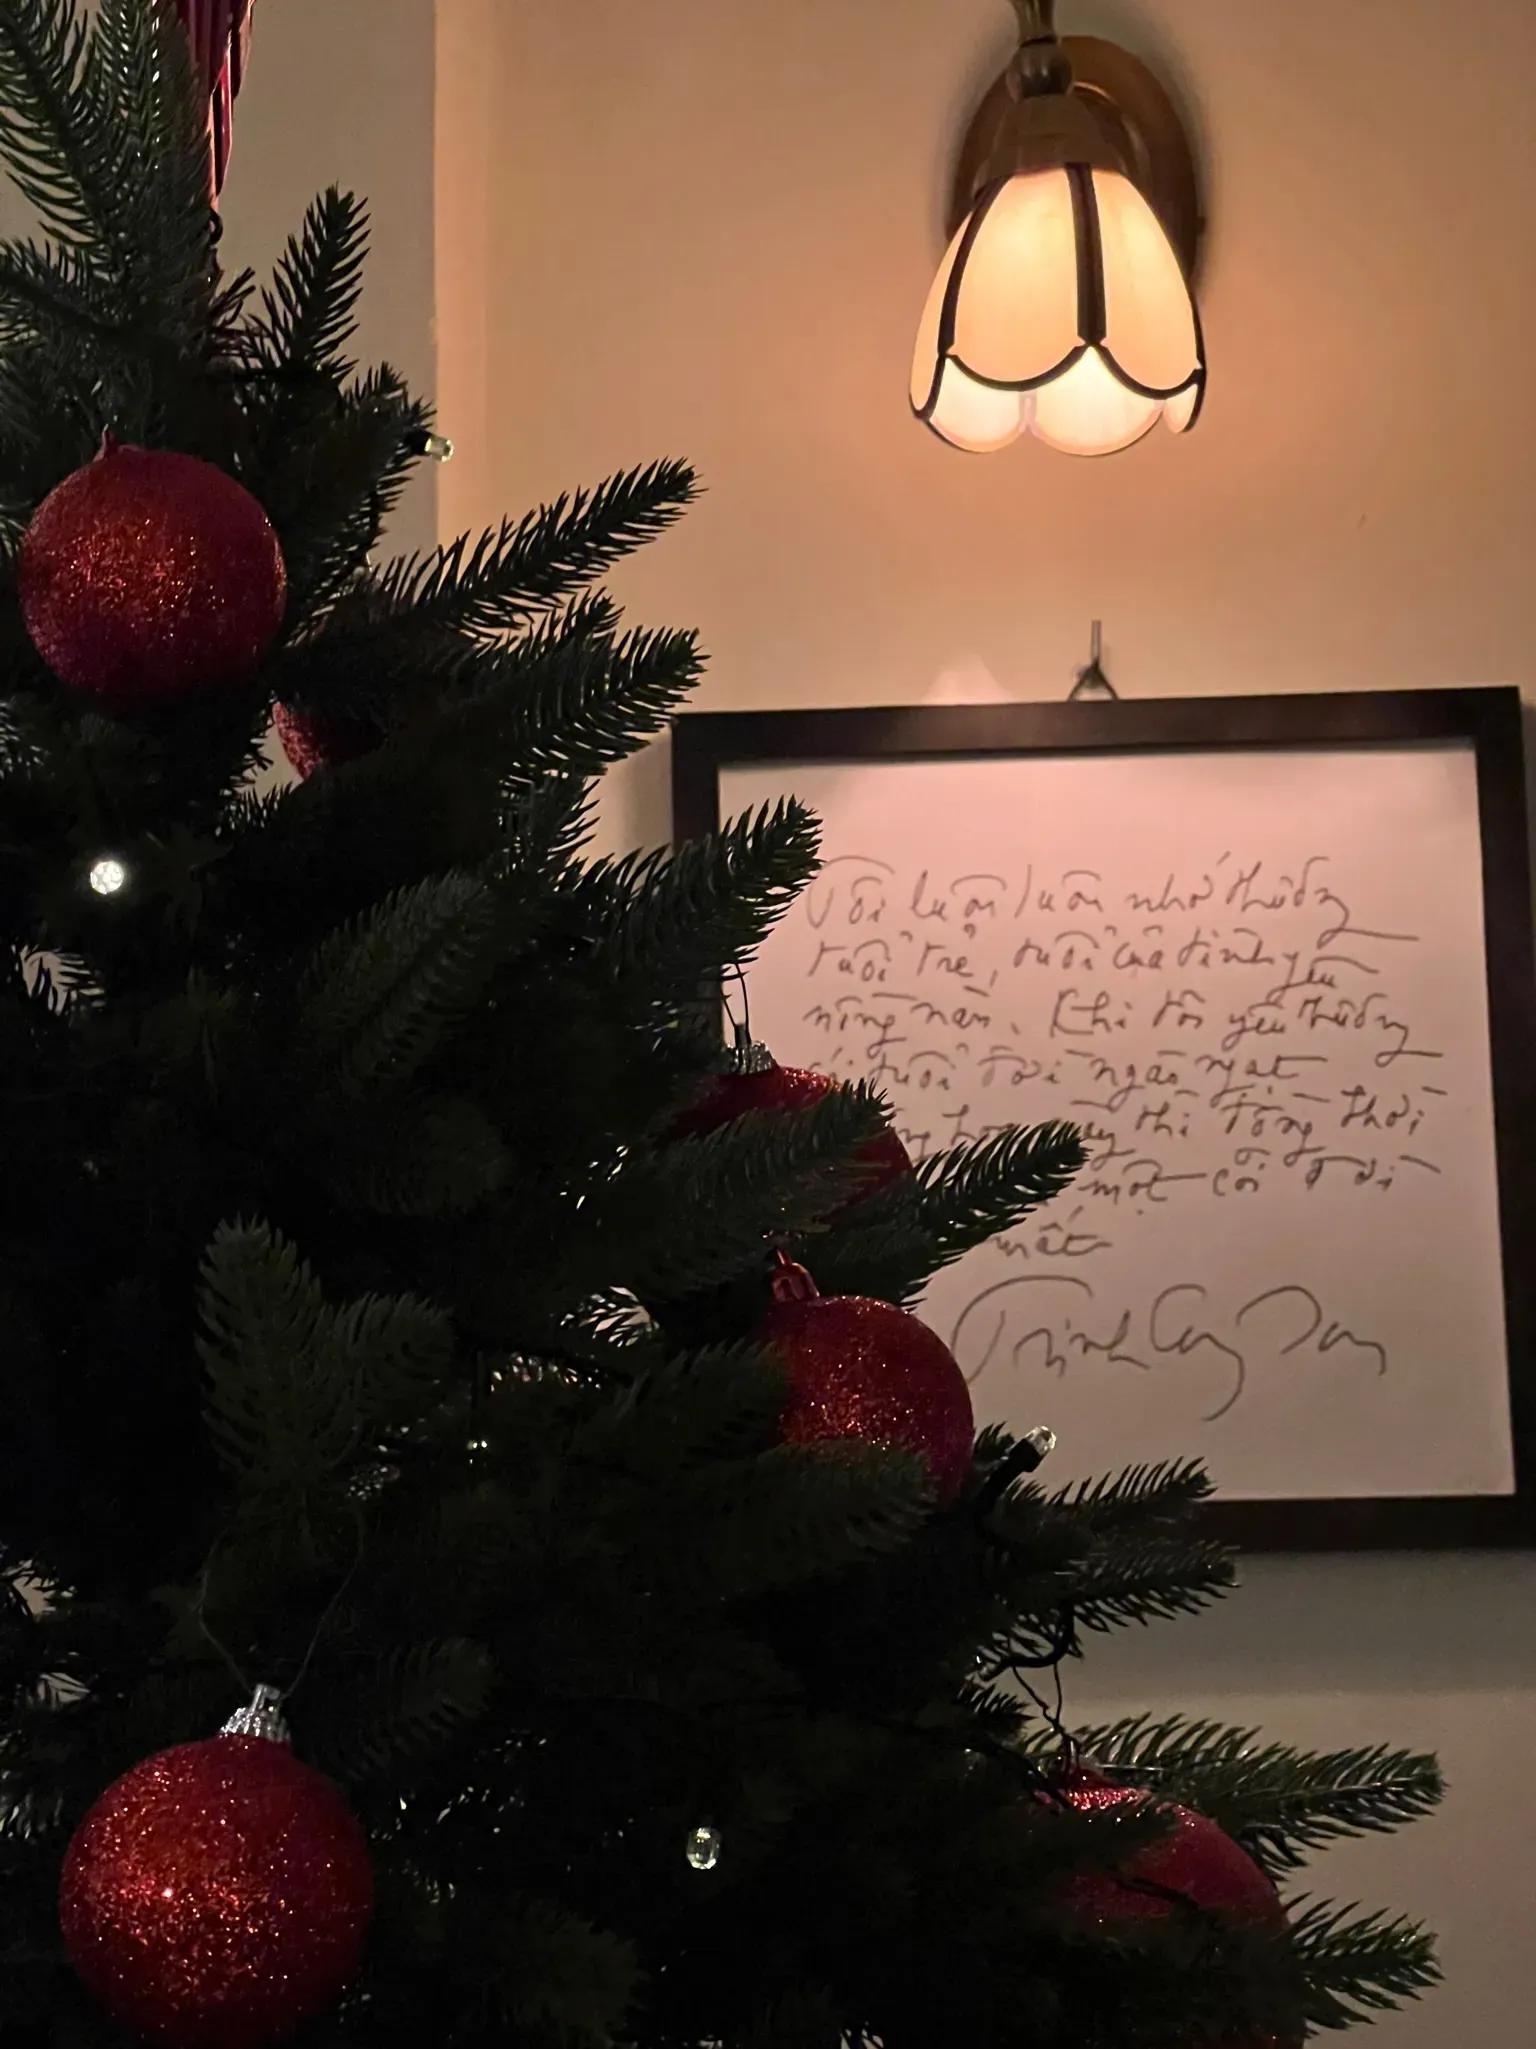 Tôi luôn luôn nhớ thương
tuổi trẻ, tuổi của tình yêu
nồng nàn. Khi tôi yêu thương
cái tuổi đời ngào ngạt
thì đồng thời
một cõi đời
mất
Trịnh Công Sơn